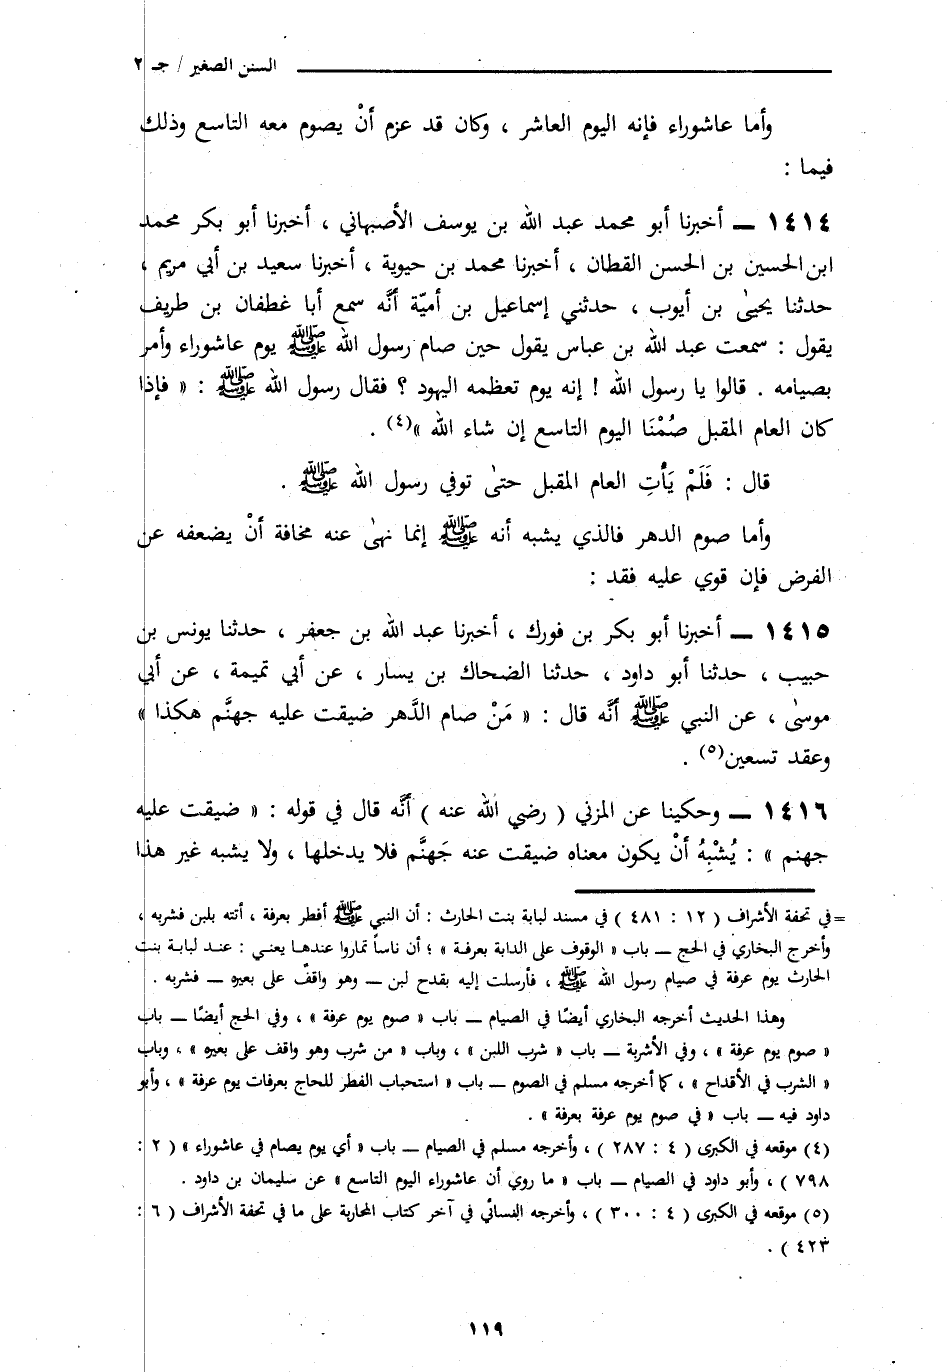 السنن الصغير / جـ ٢
وأما عاشوراء فإنه اليوم العاشر ، وكان قد عزم أنْ يصوم معه التاسع وذلك
فيما :
١٤١٤ ــ أخبرنا أبو محمد عبد الله بن يوسف الأصبهاني ، أخبرنا أبو بكر محمد
ابن الحسين بن الحسن القطان ، أخبرنا محمد بن حيوية ، أخبرنا سعيد بن أبي مريم ،
حدثنا يحيىٰ بن أيوب ، حدثني إسماعيل بن أميّة أنَّه سمع أبا غطفان بن طريف
يقول : سمعت عبد الله بن عباس يقول حين صام رسول الله ﷺ يوم عاشوراء وأمر
بصيامه . قالوا يا رسول الله ! إنه يوم تعظمه اليهود ؟ فقال رسول الله ﷺ : « فإذا
كان العام المقبل صُمْنَا اليوم التاسع إن شاء الله »(٤) .
قال : فَلَمْ يَأْتِ العام المقبل حتىٰ توفي رسول الله ﷺ .
وأما صوم الدهر فالذي يشبه أنه ﷺ إنما نهىٰ عنه مخافة أنْ يضعفه عن
الفرض فإن قوي عليه فقد :
١٤١٥ ــ أخبرنا أبو بكر بن فورك ، أخبرنا عبد الله بن جعفر ، حدثنا يونس بن
حبيب ، حدثنا أبو داود ، حدثنا الضحاك بن يسار ، عن أبي تميمة ، عن أبي
موسىٰ ، عن النبي ﷺ أنَّه قال : « مَنْ صام الدَّهر ضيقت عليه جهنَّم هكذا »
وعقد تسعين(٥) .
١٤١٦ ــ وحكينا عن المزني ( رضي الله عنه ) أنَّه قال في قوله : « ضيقت عليه
جهنم » : يُشْبِهُ أنْ يكون معناه ضيقت عنه جَهنَّم فلا يدخلها ، ولا يشبه غير هذا
= في تحفة الأشراف ( ١٢ : ٤٨١ ) في مسند لبابة بنت الحارث : أن النبي ﷺ أفطر بعرفة ، أتته بلبن فشربه ،
وأخرج البخاري في الحج ــ باب « الوقوف على الدابة بعرفة » ؛ أن ناساً تماروا عندها يعني : عند لبابة بنت
الحارث يوم عرفة في صيام رسول الله ﷺ ، فأرسلت إليه بقدح لبن ــ وهو واقفٌ على بعيره ــ فشربه .
وهذا الحديث أخرجه البخاري أيضًا في الصيام ــ باب « صوم يوم عرفة » ، وفي الحج أيضًا ــ باب
« صوم يوم عرفة » ، وفي الأشربة ــ باب « شرب اللبن » ، وباب « من شرب وهو واقف على بعيره » ، وباب
« الشرب في الأقداح » ، كما أخرجه مسلم في الصوم ــ باب « استحباب الفطر للحاج بعرفات يوم عرفة » ، وأبو
داود فيه ــ باب « في صوم يوم عرفة بعرفة » .
(٤) موقعه في الكبرى ( ٤ : ٢٨٧ ) ، وأخرجه مسلم في الصيام ــ باب « أي يوم يصام في عاشوراء » ( ٢ :
٧٩٨ ) ، وأبو داود في الصيام ــ باب « ما روي أن عاشوراء اليوم التاسع » عن سليمان بن داود .
(٥) موقعه في الكبرى ( ٤ : ٣٠٠ ) ، وأخرجه النسائي في آخر كتاب المحاربة على ما في تحفة الأشراف ( ٦ :
٤٢٣ ) .
١١٩